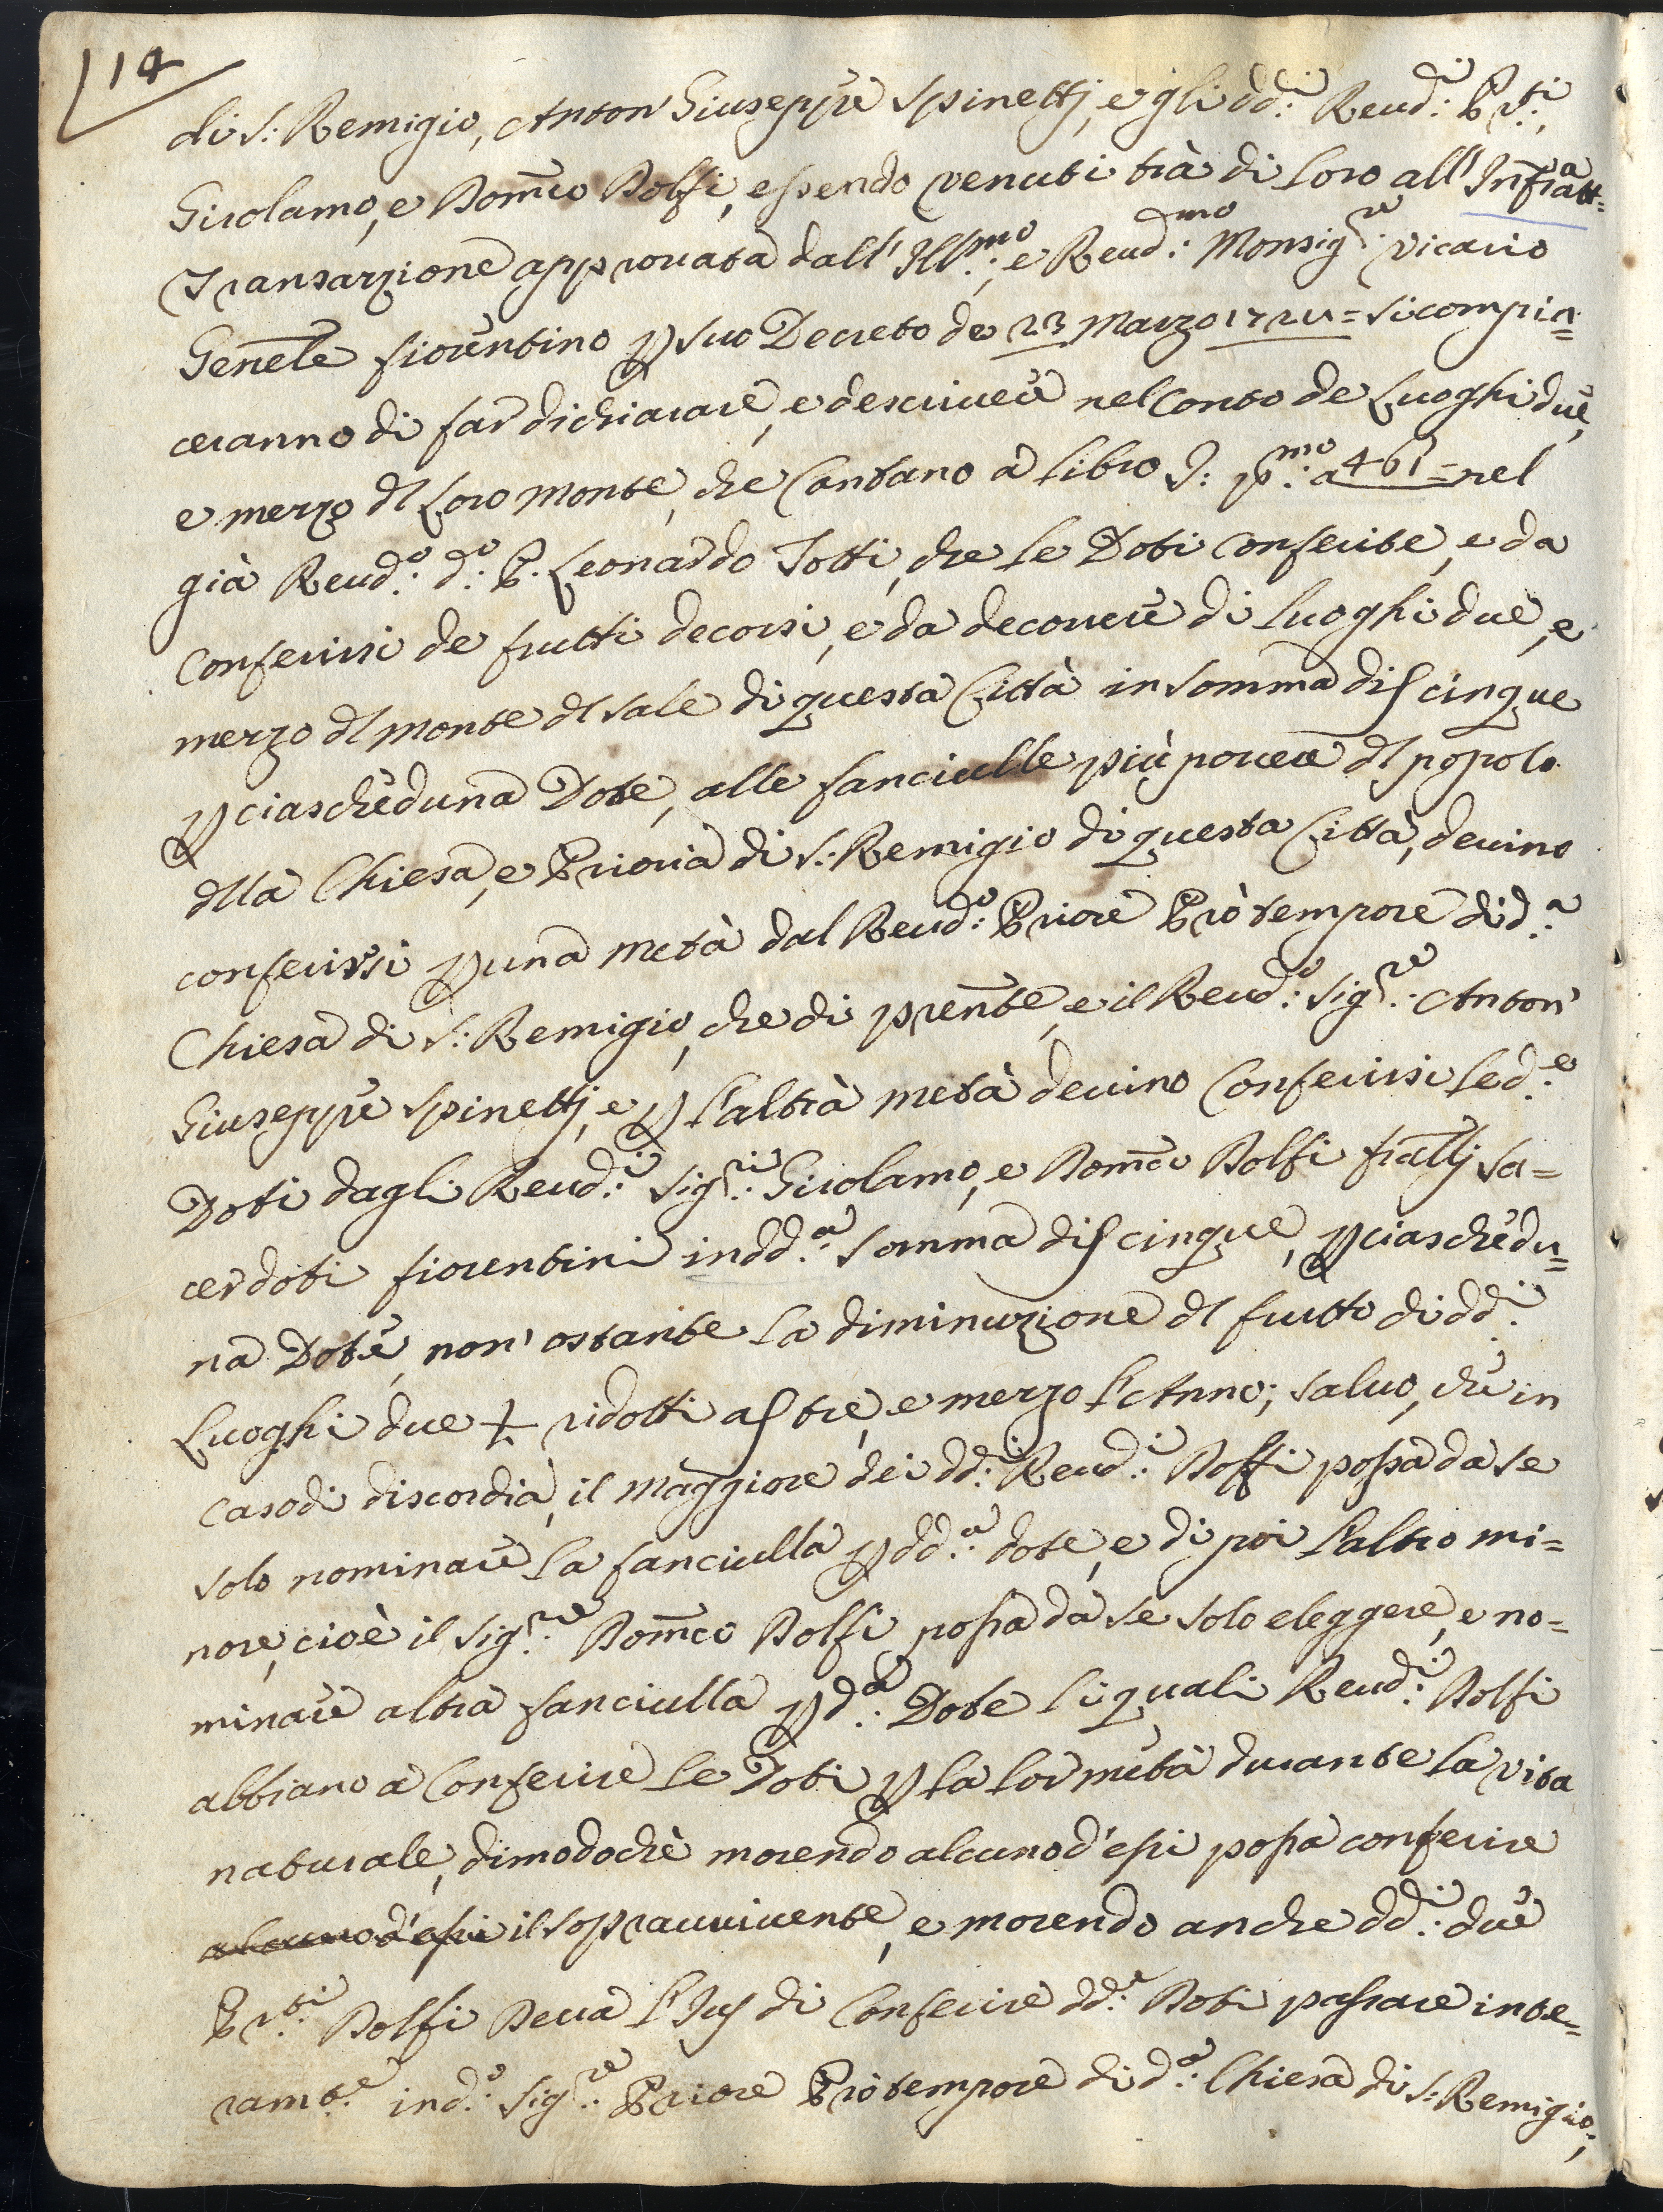 114
di S: Remigio, Anton' Giuseppe Spinettj, e gli dd:i Reud:i P.ti,
Girolamo, e Dom̃co Dolfi, essendo venuti trà di Loro all' Infratt:a=
Transazione approuata dall' Ill:mo, e Reud:mo Monsig:re Vicario
Gen̄ele fiorentino p suo Decreto de 23 Marzo 1721= si compia=
ceranno di far dichiarare, e descriuere nel Conto de Luoghi due,
e mezzo dl Loro Monte, che Cantano à Libro S: p:mo a 461= nel
già Reud:o d:o P. Leonardo Totti, che le Doti conferite, e da
Conferirsi de frutti decorsi, e da decorrere di Luoghi due, e
mezzo dl Monte dl Sale di questa Città in somma di ʃ cinque
p ciascheduna Dote, alle fanciulle più pouere dl popolo
dlla Chiesa, e Prioria di S: Remigio di questa Città, deuino
conferirsi p una metà dal Reud:o Priore Prò tempore di d:a
Chiesa di S: Remigio, che di pren̄te, e il Reud:o Sig:re Anton'
Giuseppe Spinettj, e p l'altrà metà deuino Conferirsi le d:e
Doti dagli Reud:i Sig:ri Girolamo, e Dom̃co Dolfi fratlj Sa=
cerdoti fiorentini in dd:a Somma di ʃ cinque, p ciaschedu=
na Dote, non' ostante La diminuzione dl frutto di dd:i
Luoghi due ½ ridotti a ʃ tre, e mezzo l'Anno; saluo, che in
caso di discordia, il Maggiore dei dd:i Reud:i Dolfi possa da se
solo nominare La fanciulla p dd:a dote, e di poi L'altro mi=
nore, cioè il Sig:re Dom̃co Dolfi possa da se solo eleggere, e no=
minare altra fanciulla p d:a Dote li quali Reud:i Dolfi
abbiano à Conferire Le Doti p La Lor metà durante La vita
naturale, dimodochè morendo alcuno d'essi possa conferire
alcuno d'essi il soprauuiuente, e morendo anche dd:i due
P.ti Dolfi Deua l'Jus di Conferire dd:e Doti passare inte=
ram:te in d:o Sig:re Priore Prò tempore di d:a Chiesa di S: Remigio,